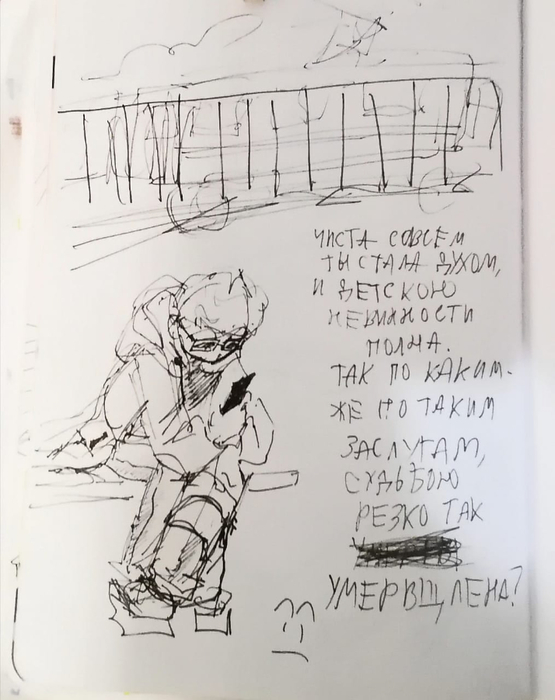 ЧИСТА СОВСЕМ
ТЫ СТАЛА ДУХОМ,
И ДЕТСКОЮ
НЕВИННОСТИ
ПОЛНА.
ТАК ПО КАКИМ-
ЖЕ ПО ТАКИМ
ЗАСЛУГАМ,
СУДЬБОЮ
РЕЗКО ТАК
УМЕРВЩЛЕНА?